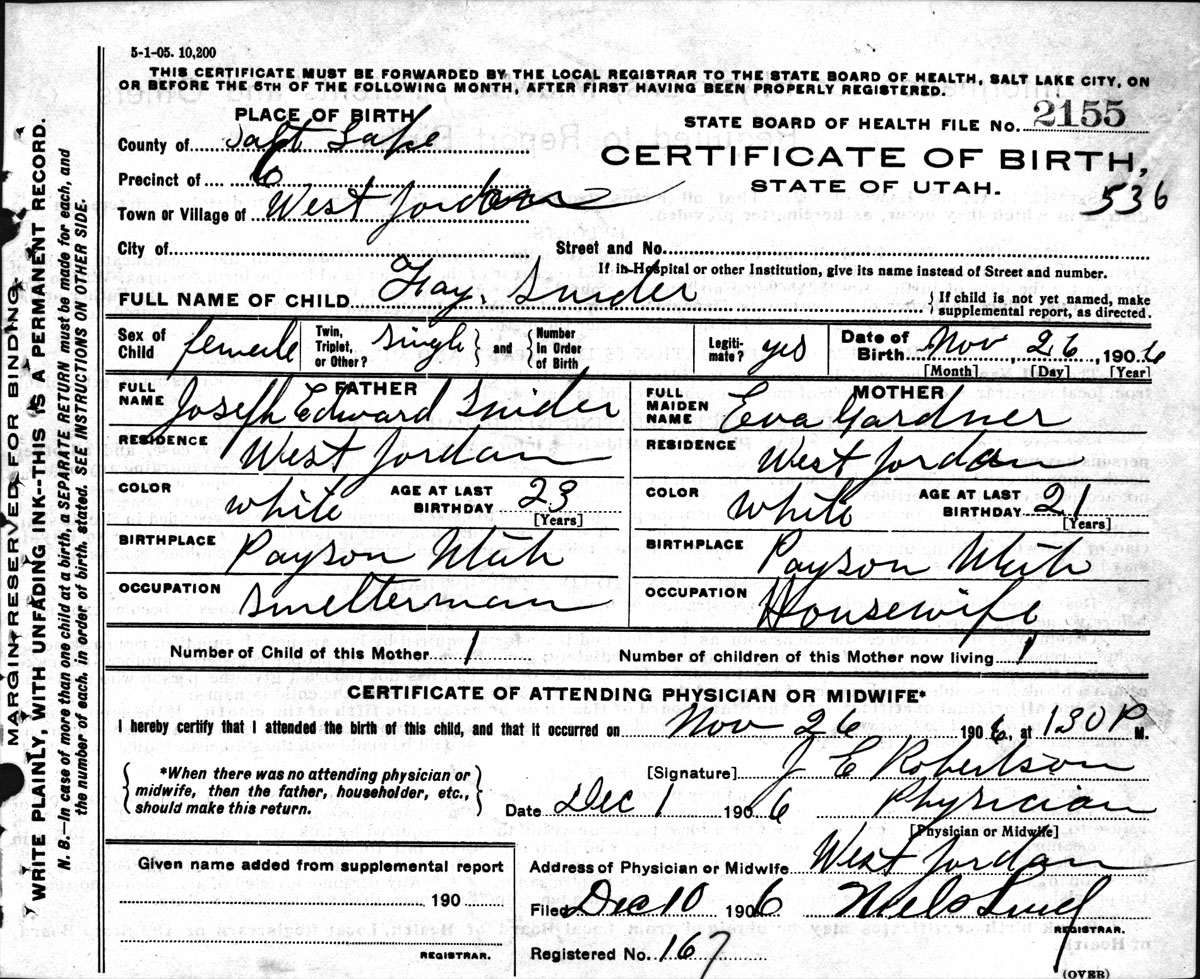 5-1-05. 10,200
THIS CERTIFICATE MUST BE FORWARDED BY THE LOCAL REGISTRAR TO THE STATE BOARD OF HEALTH, SALT LAKE CITY, ON
OR BEFORE THE 5TH OF THE FOLLOWING MONTH, AFTER FIRST HAVING BEEN PROPERLY REGISTERED.
PLACE OF BIRTH
STATE BOARD OF HEALTH FILE No. 2155
County of Salt Lake
CERTIFICATE OF BIRTH,
STATE OF UTAH.
536
Precinct of
Town or Village of West Jordan
City of
Street and No.
If in Hospital or other Institution, give its name instead of Street and number.
FULL NAME OF CHILD Fay. Snider
{ If child is not yet named, make
supplemental report, as directed.
Sex of Child female
Twin, Triplet, or Other? single } and { Number In Order of Birth
Legitimate? yes
Date of Birth Nov, 26, 1906
[Month] [Day] [Year]
FATHER
FULL NAME Joseph Edward Snider
RESIDENCE West Jordan
COLOR white AGE AT LAST BIRTHDAY 23
[Years]
BIRTHPLACE Payson Utah
OCCUPATION smelterman
MOTHER
FULL MAIDEN NAME Eva Gardner
RESIDENCE West Jordan
COLOR white AGE AT LAST BIRTHDAY 21
[Years]
BIRTHPLACE Payson Utah
OCCUPATION Housewife
Number of Child of this Mother 1 Number of children of this Mother now living 1
CERTIFICATE OF ATTENDING PHYSICIAN OR MIDWIFE*
I hereby certify that I attended the birth of this child, and that it occurred on Nov 26 1906, at 130 P M.
{ *When there was no attending physician or
midwife, then the father, householder, etc.,
should make this return. }
[Signature] J E Robertson
Date Dec 1 1906 Physician
[Physician or Midwife]
Given name added from supplemental report
190
REGISTRAR.
Address of Physician or Midwife West Jordan
Filed Dec 10 1906 Niels Lind
REGISTRAR.
Registered No. 167
(OVER)
MARGIN RESERVED FOR BINDING.
WRITE PLAINLY, WITH UNFADING INK--THIS IS A PERMANENT RECORD.
N. B.—In case of more than one child at a birth, a SEPARATE RETURN must be made for each, and
the number of each, in order of birth, stated. SEE INSTRUCTIONS ON OTHER SIDE.